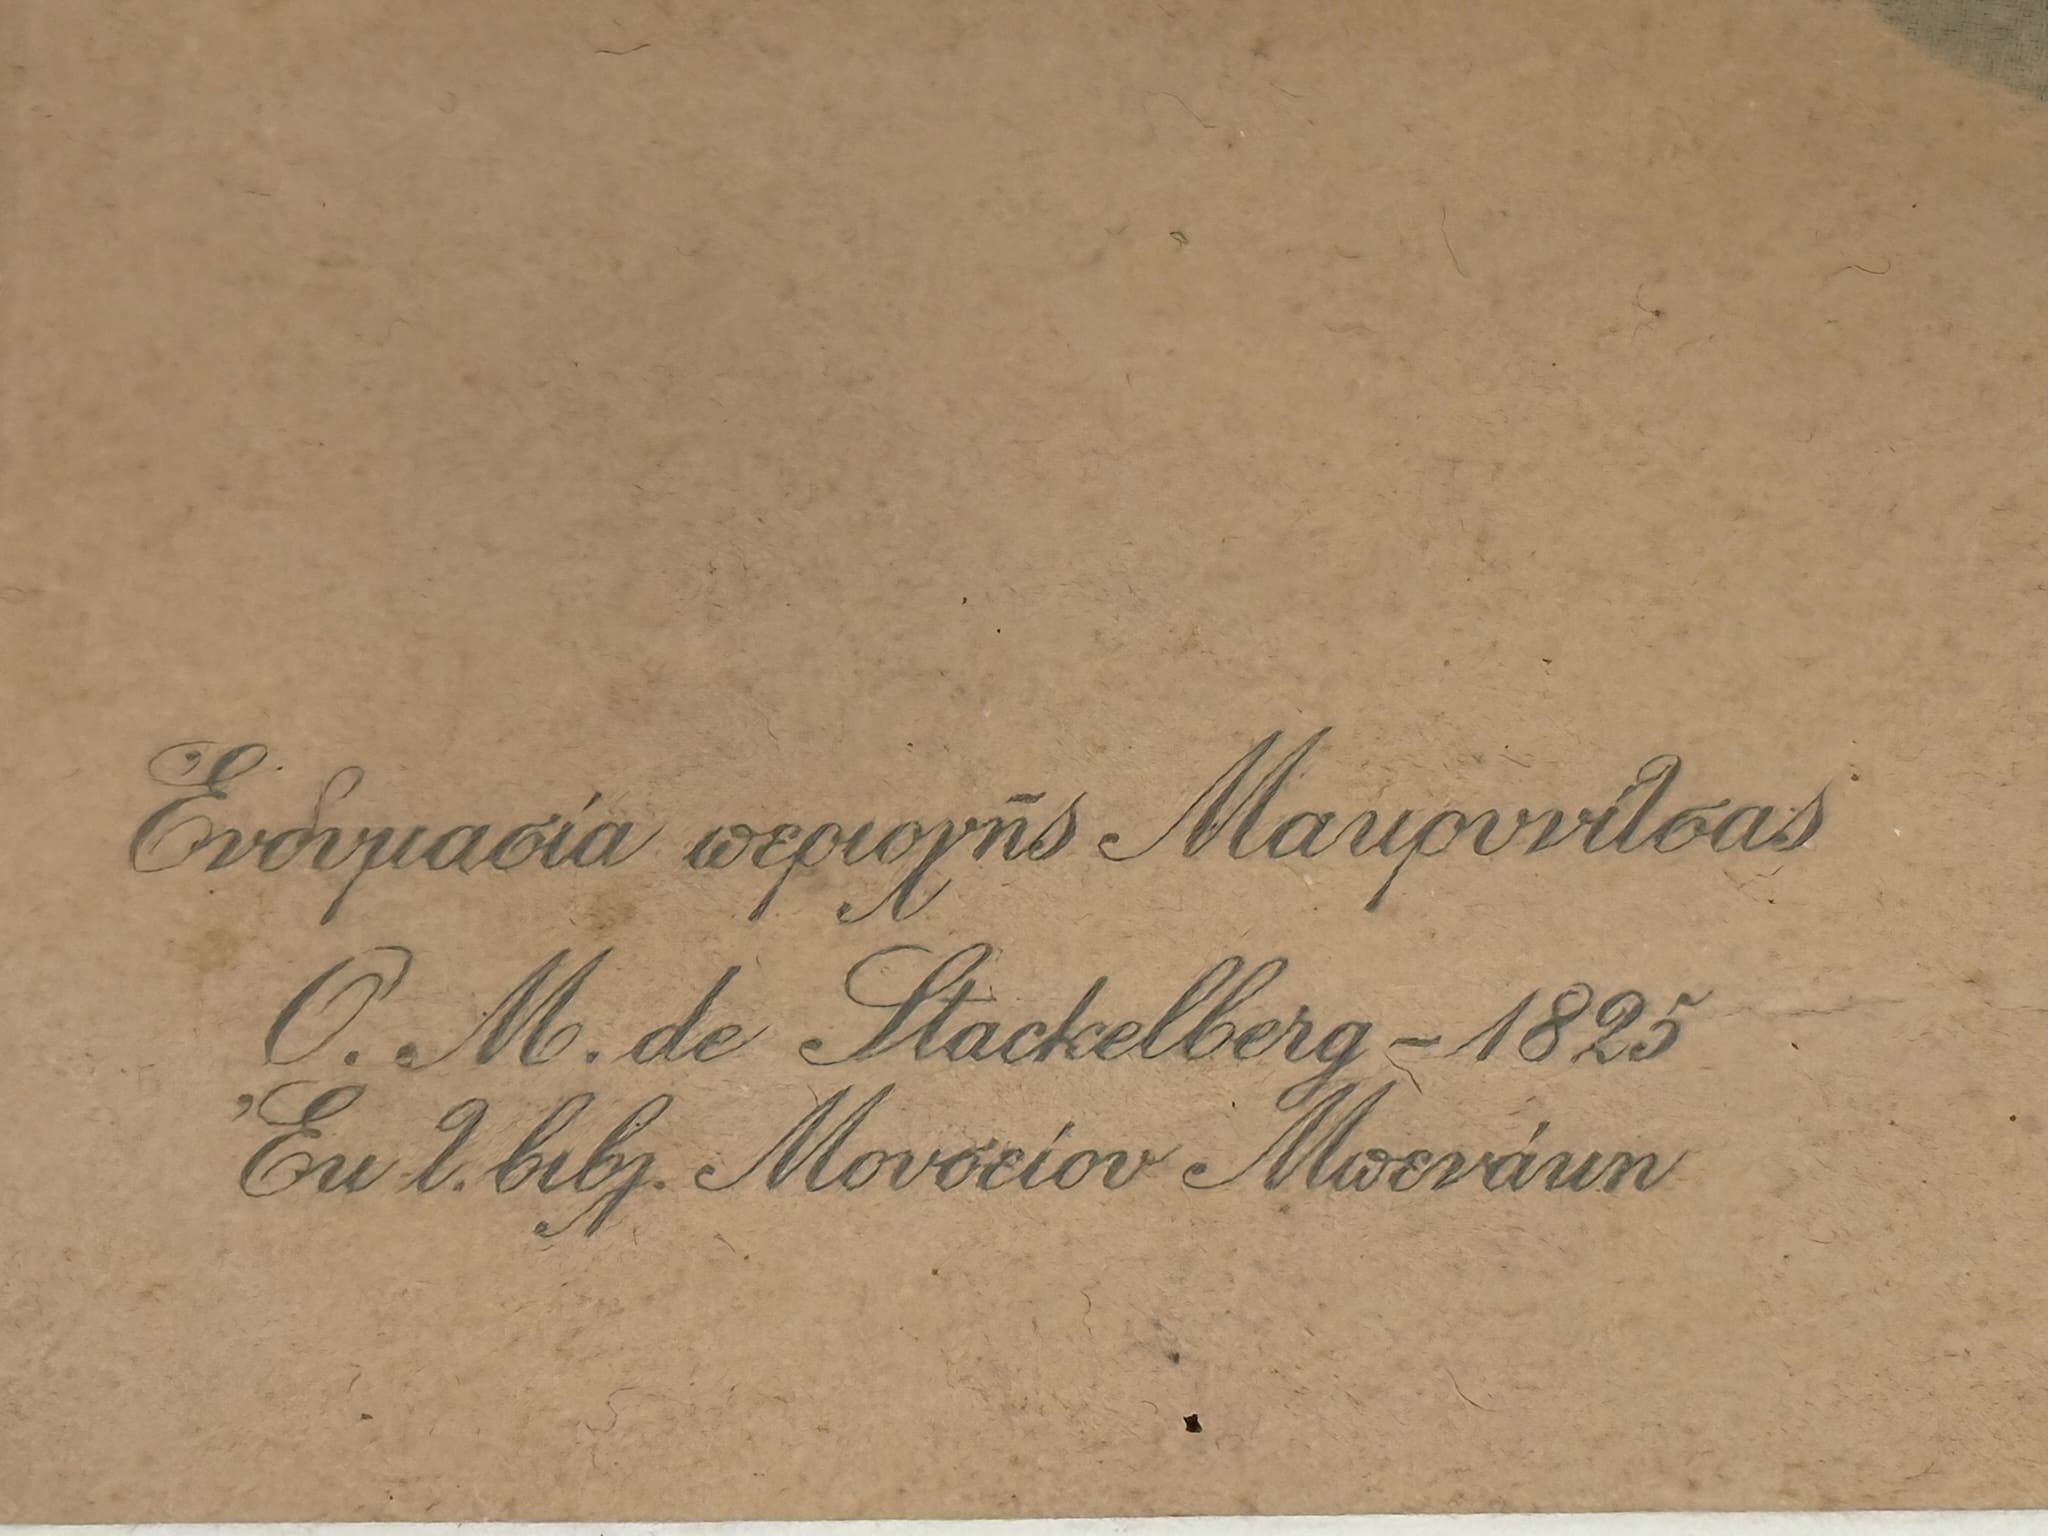 Ἐνδυμασία περιοχῆς Μακρυνίτσας
O. M. de Stackelberg – 1825
Ἐκ τ. βιβλ. Μουσείου Μπενάκη